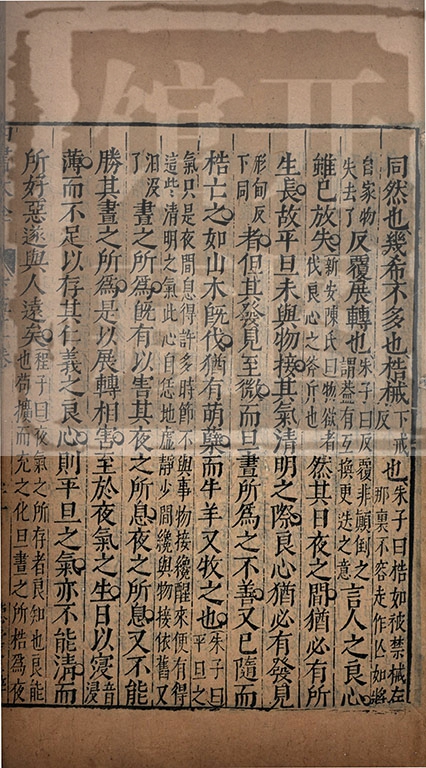 同然也幾希不多也梏械下戒反也朱子曰梏如被禁械在那裏不容走作亾如將
自家物失去了反覆展轉也朱子曰反覆非顛倒之謂葢有互換更迭之意言人之良心
雖已放失新安陳氏曰物欲者伐良心之斧斤也然其日夜之間猶必有所
生長故平旦未與物接其氣清明之際良心猶必有發見
形甸反下同者但其發見至微而旦晝所爲之不善又已隨而
梏亡之如山木旣伐猶有萌蘗而牛羊又牧之也朱子曰平旦之
氣只是夜間息得許多時節不與事物接纔醒來便有得這些清明之氣此心自恁地虛靜少間纔與物接依舊又
汨沒了晝之所爲旣有以害其夜之所息夜之所息又不能
勝其晝之所爲是以展轉相害至於夜氣之生日以寖音浸
薄而不足以存其仁義之良心則平旦之氣亦不能清而
所好惡遂與人遠矣程子曰夜氣之所存者良知也良能也苟擴而充之化旦晝之所梏爲夜